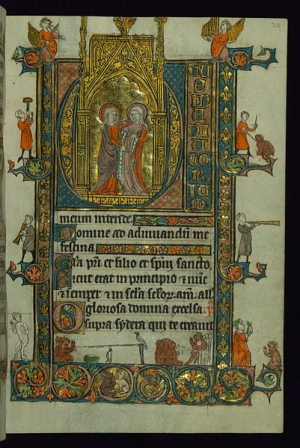 D EVS IN
ADIVTORIVM
meum intende.
Domine ad adiuuandū me
festina
Gła pr̃i et filio et spūi sancto,
sicut erat in principio et nūc
et semper et in sc̄la sc̄lorȝ am̄. all̄
O gloriosa domina excelsa
supra sydera qui te creauit